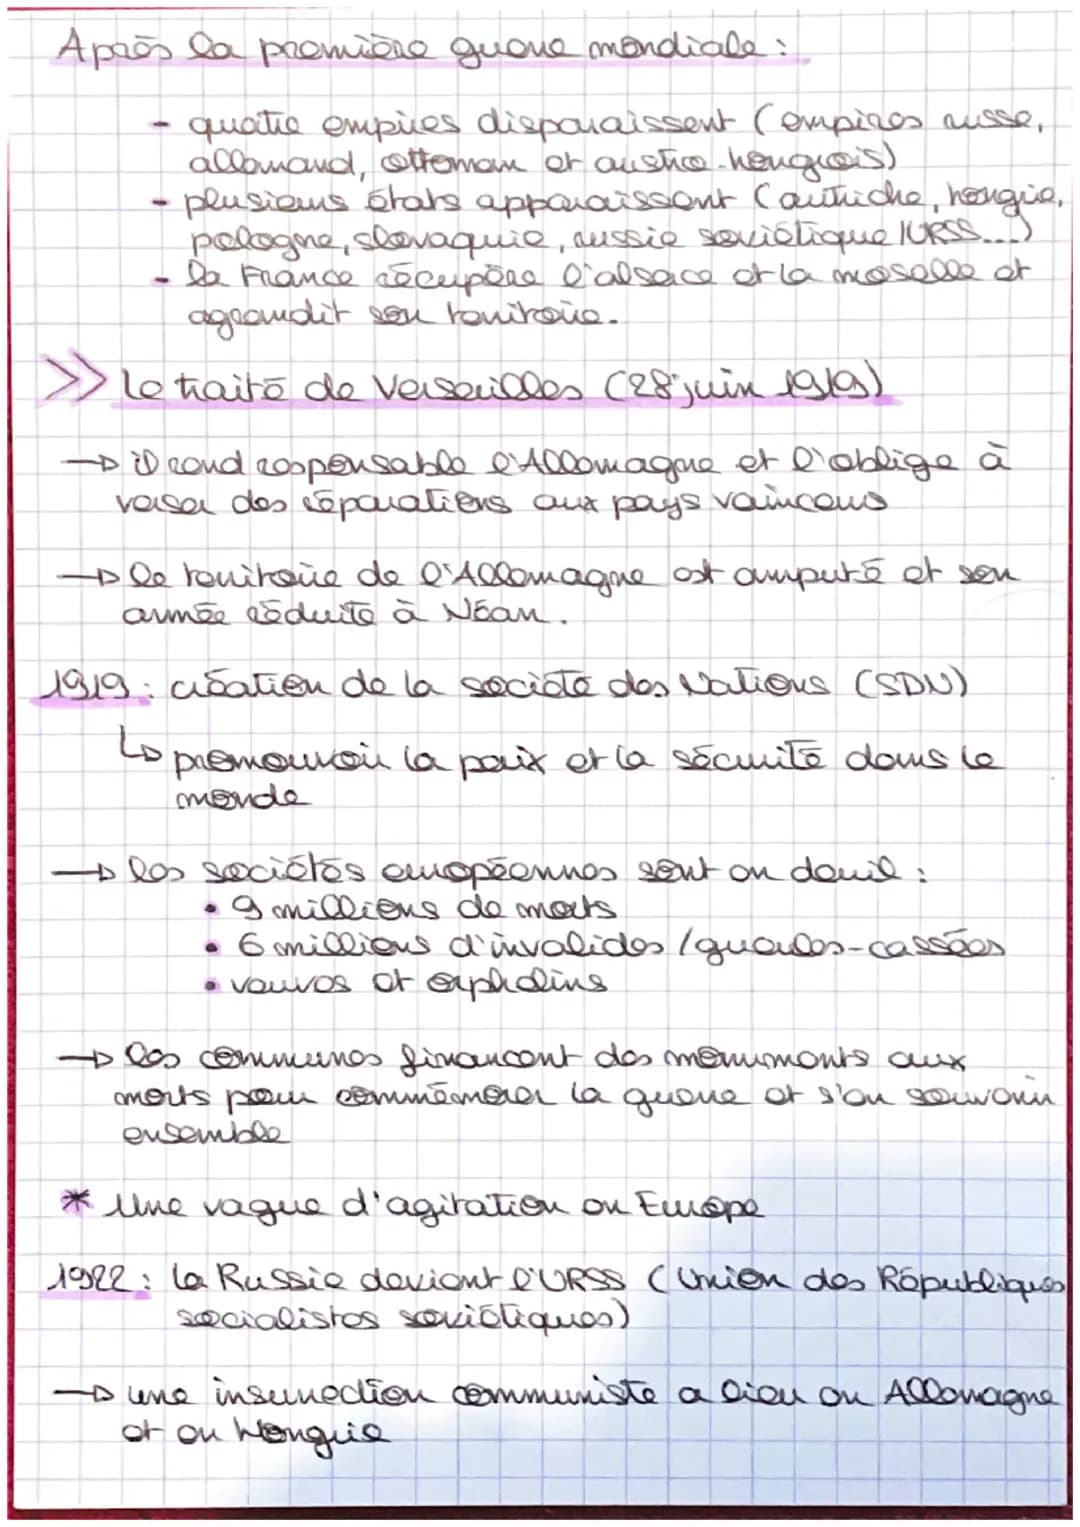 Après la première guerre mondiale :
- quatre empires disparaissent (empires russe,
allemand, ottoman et austro-hongrois)
- plusieurs États apparaissent (autriche, hongrie,
pologne, slovaquie, russie soviétique/URSS...)
- la France récupère l'alsace et la moselle et
agrandit son territoire.
>> Le traité de Versailles (28 juin 1919)
→ il rend responsable l'Allemagne et l'oblige à
verser des réparations aux pays vainceurs
→ le territoire de l'Allemagne est amputé et son
armée réduite à Néan.
1919 : création de la société des Nations (SDN)
↳ promouvoir la paix et la sécurité dans le
monde
→ les sociétés européennes sont en deuil :
• 9 millions de morts
• 6 millions d'invalides / gueules-cassées
• veuves et orphelins
→ les communes financent des monuments aux
morts pour commémorer la guerre et s'en souvenir
ensemble
* Une vague d'agitation en Europe
1922 : la Russie devient l'URSS (Union des Républiques
socialistes soviétiques)
→ une insurrection communiste a lieu en Allemagne
et en Hongrie